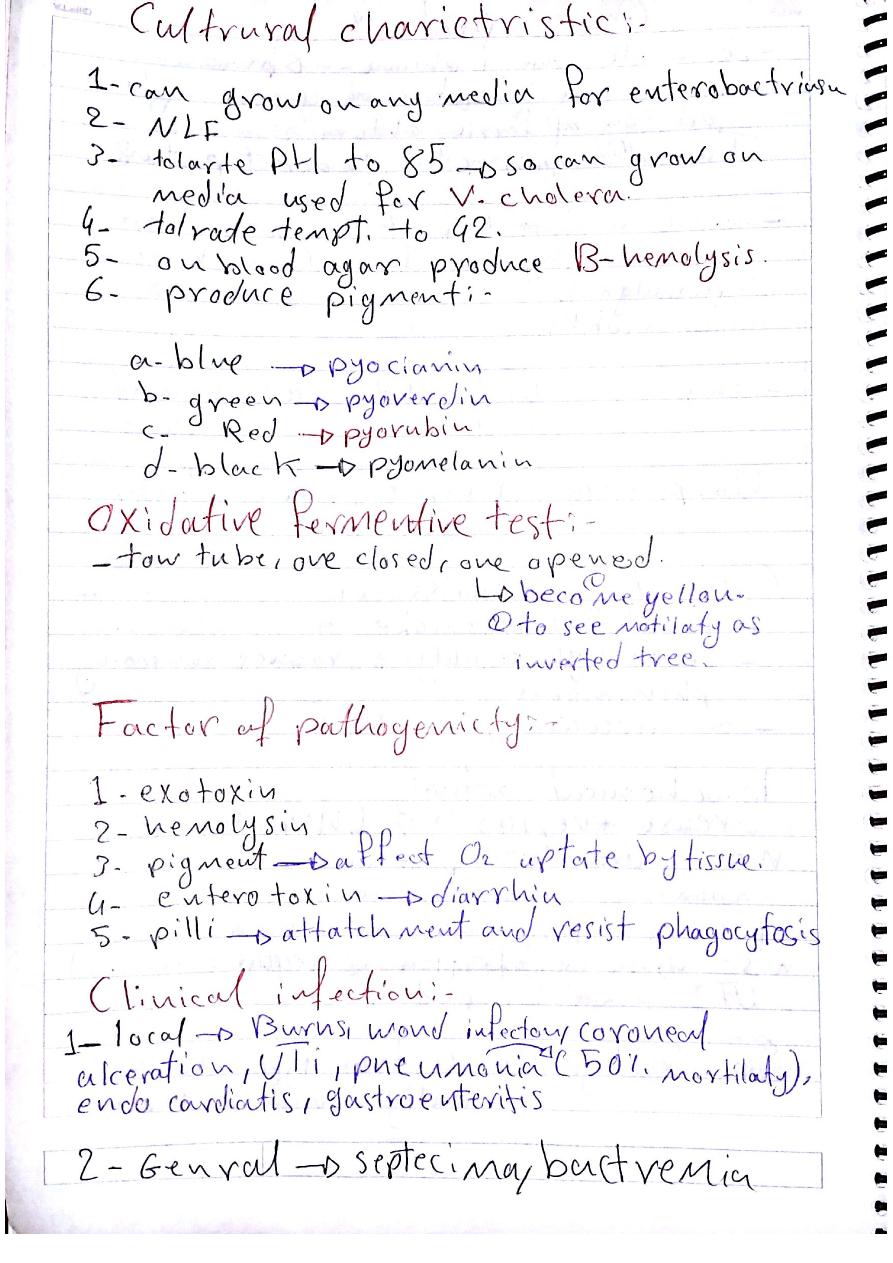 Cultrural charictristic:-
1- can grow on any media for enterobactriasu
2- NLF
3- tolarte PH to 85 → so can grow on
media used for V. cholera.
4- tolrate tempt. to 42.
5- on blood agar produce B-hemolysis.
6- produce pigment:-
a- blue → pyocianin
b- green → pyoverdin
c- Red → pyorubin
d- black → pyomelanin
Oxidative fermentive test:-
- tow tube, one closed, one opened.
↳ ① become yellow.
② to see motilaty as
inverted tree.
Factor of pathogenicty:-
1- exotoxin
2- hemolysin
3- pigment → affect O2 uptate by tissue.
4- entero toxin → diarrhia
5- pilli → attatchment and resist phagocytosis
Clinical infection:-
1- local → Burns, wond infectoy, coroneal
alceration, UTi, pneumonia (50% mortilaty),
endo cardiatis, gastroenteritis
2- Genral → septecima, bactremia